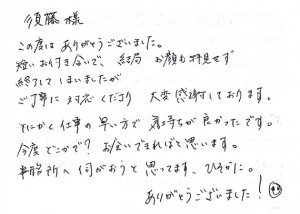 須藤 様
この度は ありがとうございました。
短いお付き合いで、結局 お顔も拝見せず
終了してしまいましたが
ご丁寧に対応くださり 大変感謝しております。
とにかく仕事の早い方で 気持ちが良かったです。
今度どこかで? お会いできればと思います。
事務所へ伺がおうと思ってます、ひそかに。
ありがとうございました!